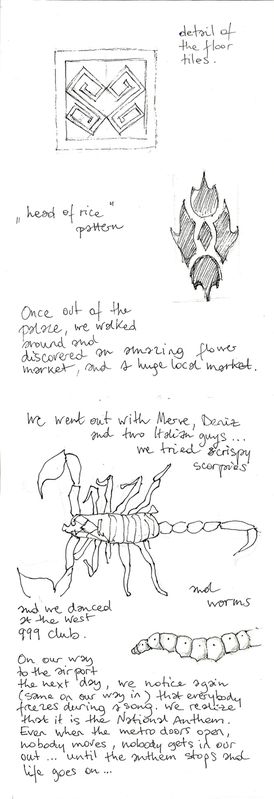 detail of
the floor
tiles.
„head of rice"
pattern
Once out of the
palace, we walked
around and
discovered an amazing flower
market, and a huge local market.
We went out with Merve, Deniz
and two Italian guys...
we tried crispy
scorpoids
and
worms
and we danced
at the West
999 club.
On our way
to the airport
the next day, we notice again
(same on our way in) that everybody
freezes during a song. We realize
that it is the National Anthem.
Even when the metro doors open,
nobody moves, nobody gets in our
out... until the anthem stops and
life goes on...